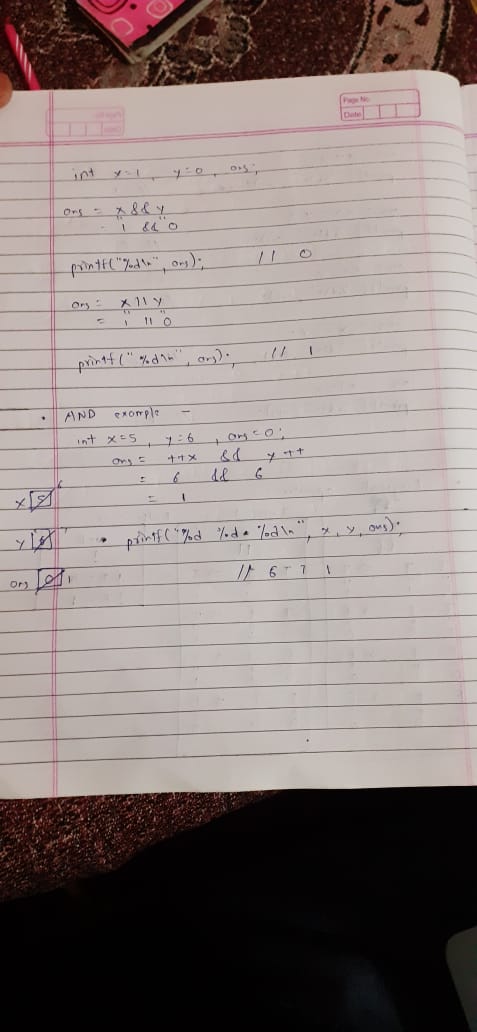 Page No.
Date
int x=1, y=0, ans;
ans = x && y
= 1 && 0
printf("%d\n", ans); // 0
ans = x || y
= 1 || 0
printf("%d\n", ans); // 1
• AND example -
int x=5, y=6, ans=0;
ans = ++x && y++
= 6 && 6
x 5 6
= 1
y 6 7 • printf("%d %d %d\n", x, y, ans);
ans 0 1 // 6 7 1